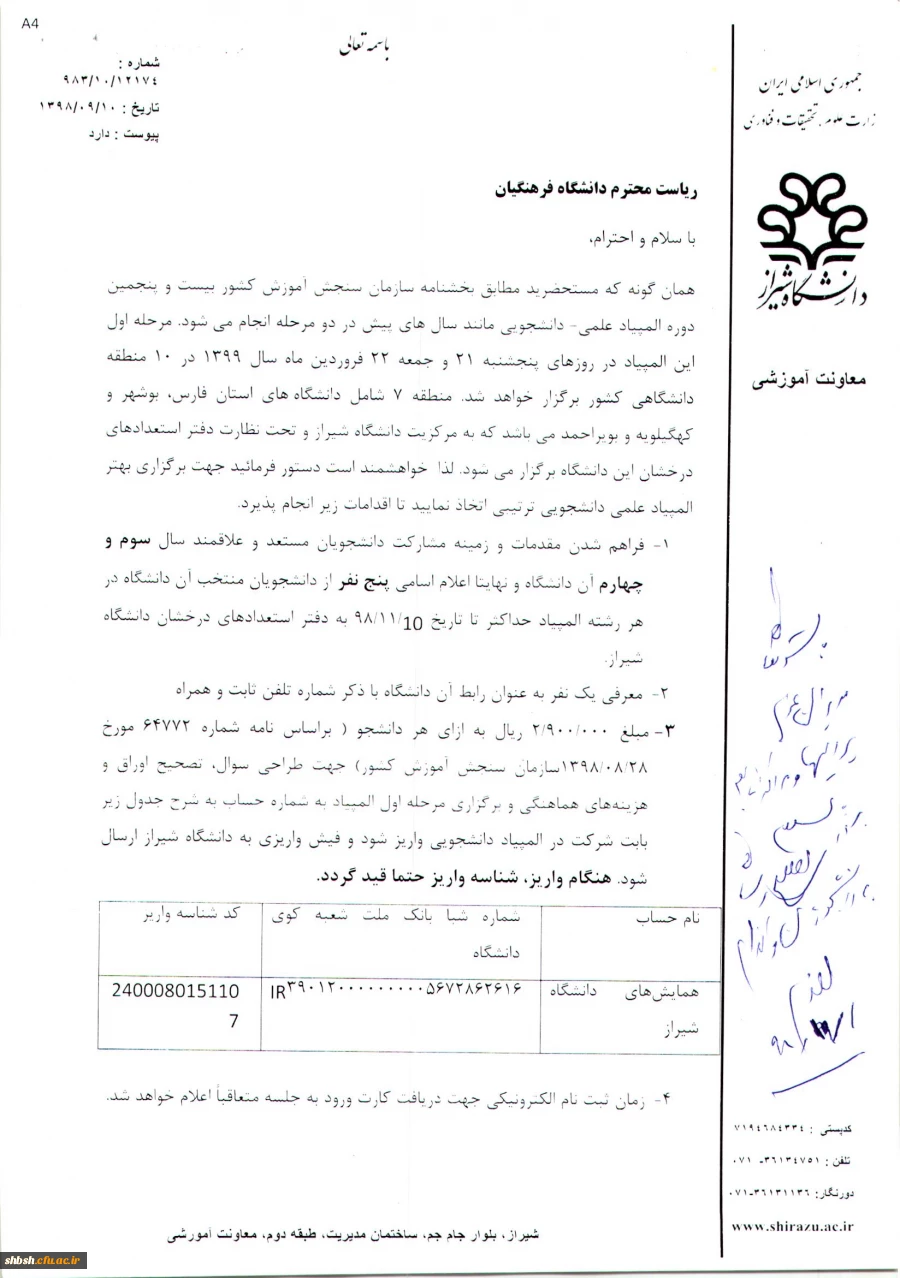 A4
باسمه تعالی
شماره :
۹۸۳/۱۰/۱۲۱۷٤
تاریخ : ۱۳۹۸/۰۹/۱۰
پیوست : دارد
جمهوری اسلامی ایران
زارت علوم ، تحقیقات و فناوری
دانشگاه شیراز
معاونت آموزشی
ریاست محترم دانشگاه فرهنگیان
با سلام و احترام،
همان گونه که مستحضرید مطابق بخشنامه سازمان سنجش آموزش کشور بیست و پنجمین
دوره المپیاد علمی- دانشجویی مانند سال های پیش در دو مرحله انجام می شود. مرحله اول
این المپیاد در روزهای پنجشنبه ۲۱ و جمعه ۲۲ فروردین ماه سال ۱۳۹۹ در ۱۰ منطقه
دانشگاهی کشور برگزار خواهد شد. منطقه ۷ شامل دانشگاه های استان فارس، بوشهر و
کهگیلویه و بویراحمد می باشد که به مرکزیت دانشگاه شیراز و تحت نظارت دفتر استعدادهای
درخشان این دانشگاه برگزار می شود. لذا خواهشمند است دستور فرمائید جهت برگزاری بهتر
المپیاد علمی دانشجویی ترتیبی اتخاذ نمایید تا اقدامات زیر انجام پذیرد.
۱- فراهم شدن مقدمات و زمینه مشارکت دانشجویان مستعد و علاقمند سال سوم و
چهارم آن دانشگاه و نهایتا اعلام اسامی پنج نفر از دانشجویان منتخب آن دانشگاه در
هر رشته المپیاد حداکثر تا تاریخ 10/۹۸/۱۱ به دفتر استعدادهای درخشان دانشگاه
شیراز.
۲- معرفی یک نفر به عنوان رابط آن دانشگاه با ذکر شماره تلفن ثابت و همراه
۳- مبلغ ۲/۹۰۰/۰۰۰ ریال به ازای هر دانشجو ( براساس نامه شماره ۶۴۷۷۲ مورخ
۱۳۹۸/۰۸/۲۸سازمان سنجش آموزش کشور) جهت طراحی سوال، تصحیح اوراق و
هزینه‌های هماهنگی و برگزاری مرحله اول المپیاد به شماره حساب به شرح جدول زیر
بابت شرکت در المپیاد دانشجویی واریز شود و فیش واریزی به دانشگاه شیراز ارسال
شود. هنگام واریز، شناسه واریز حتما قید گردد.
نام حساب
شماره شبا بانک ملت شعبه کوی
دانشگاه
کد شناسه واریز
همایش‌های دانشگاه
شیراز
IR۳۹۰۱۲۰۰۰۰۰۰۰۰۰۰۵۶۷۲۸۶۲۶۱۶
240008015110
7
۴- زمان ثبت نام الکترونیکی جهت دریافت کارت ورود به جلسه متعاقباً اعلام خواهد شد.
کدپستی : ۷۱۹٤٦۸٤۳۳٤
تلفن : ۳٦۱۳٤۷٥۱-۰۷۱
دورنگار: ۳٦۱۳۱۱۳٦-۰۷۱
www.shirazu.ac.ir
شیراز، بلوار جام جم، ساختمان مدیریت، طبقه دوم، معاونت آموزشی
shbsh.cfu.ac.ir